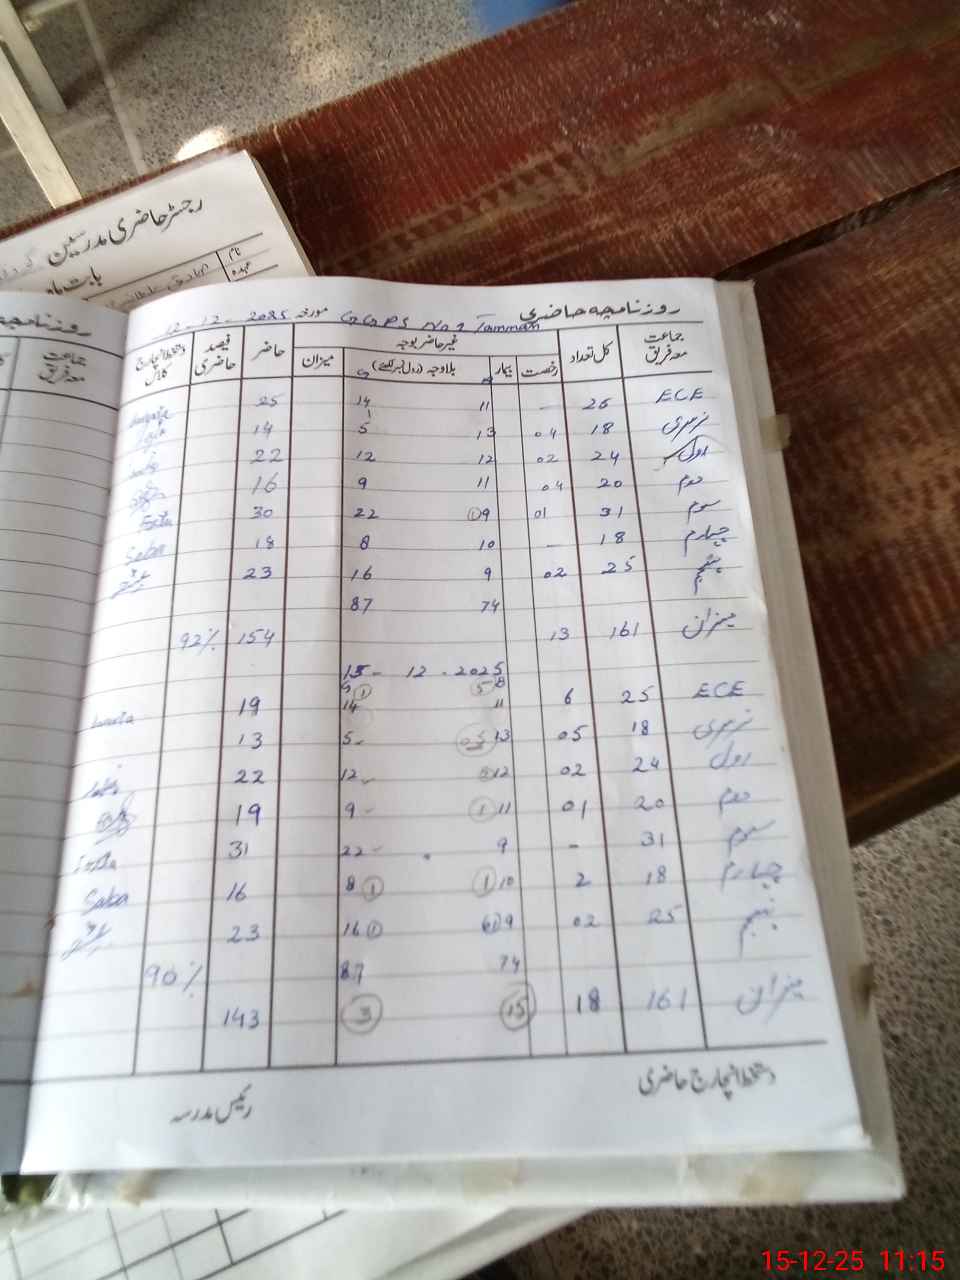 رجسٹر حاضری مدرسین
بابت ماہ
نام
عہدہ
روزنامچہ حاضری
مورخہ 12-12-2025 GGPS No 2 Tamman
جماعت معہ فریق کل تعداد غیر حاضر بوجہ حاضر فیصد حاضری دستخط انچارج کلاس
رخصت بیمار بلاوجہ (رول نمبر لکھئے) میزان
ECE 25 - 11 14 25
نرسری 18 04 13 5 14
اول 24 02 12 12 22
دوم 20 04 11 9 16
سوم 31 01 9 22 30
چہارم 18 - 10 8 18 Saba
پنجم 25 02 9 16 23
74 87
میزان 161 13 154 92%
15-12-2025
ECE 25 6 11 14 19
نرسری 18 05 13 5 13
اول 24 02 12 12 22
دوم 20 01 11 9 19
سوم 31 - 9 22 31
چہارم 18 2 10 8 16 Saba
پنجم 25 02 9 16 23
74 87 90%
میزان 161 18 15 3 143
دستخط انچارج حاضری
رئیس مدرسہ
جماعت
معہ فریق
15-12-25 11:15